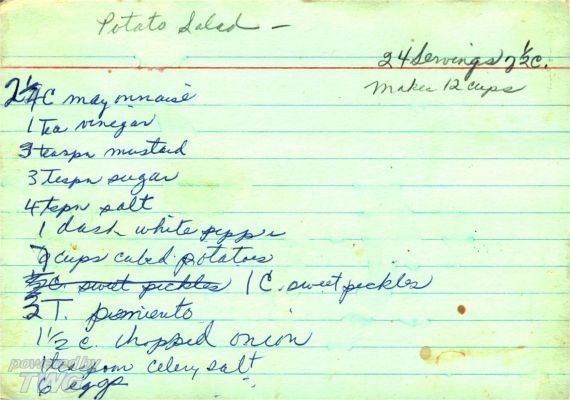 Potato Salad —
24 Servings of ½ C.
Makes 12 cups
2¼ C mayonnaise
1 tea vinegar
3 teaspn mustard
3 tespn sugar
4 tspn salt
1 dash white pepper
9 cups cubed potatoes
½ C. sweet pickles 1 C. sweet pickles
3 T. pimiento
1 ½ c. chopped onion
1 teaspoon celery salt
6 eggs
powered by
TWG